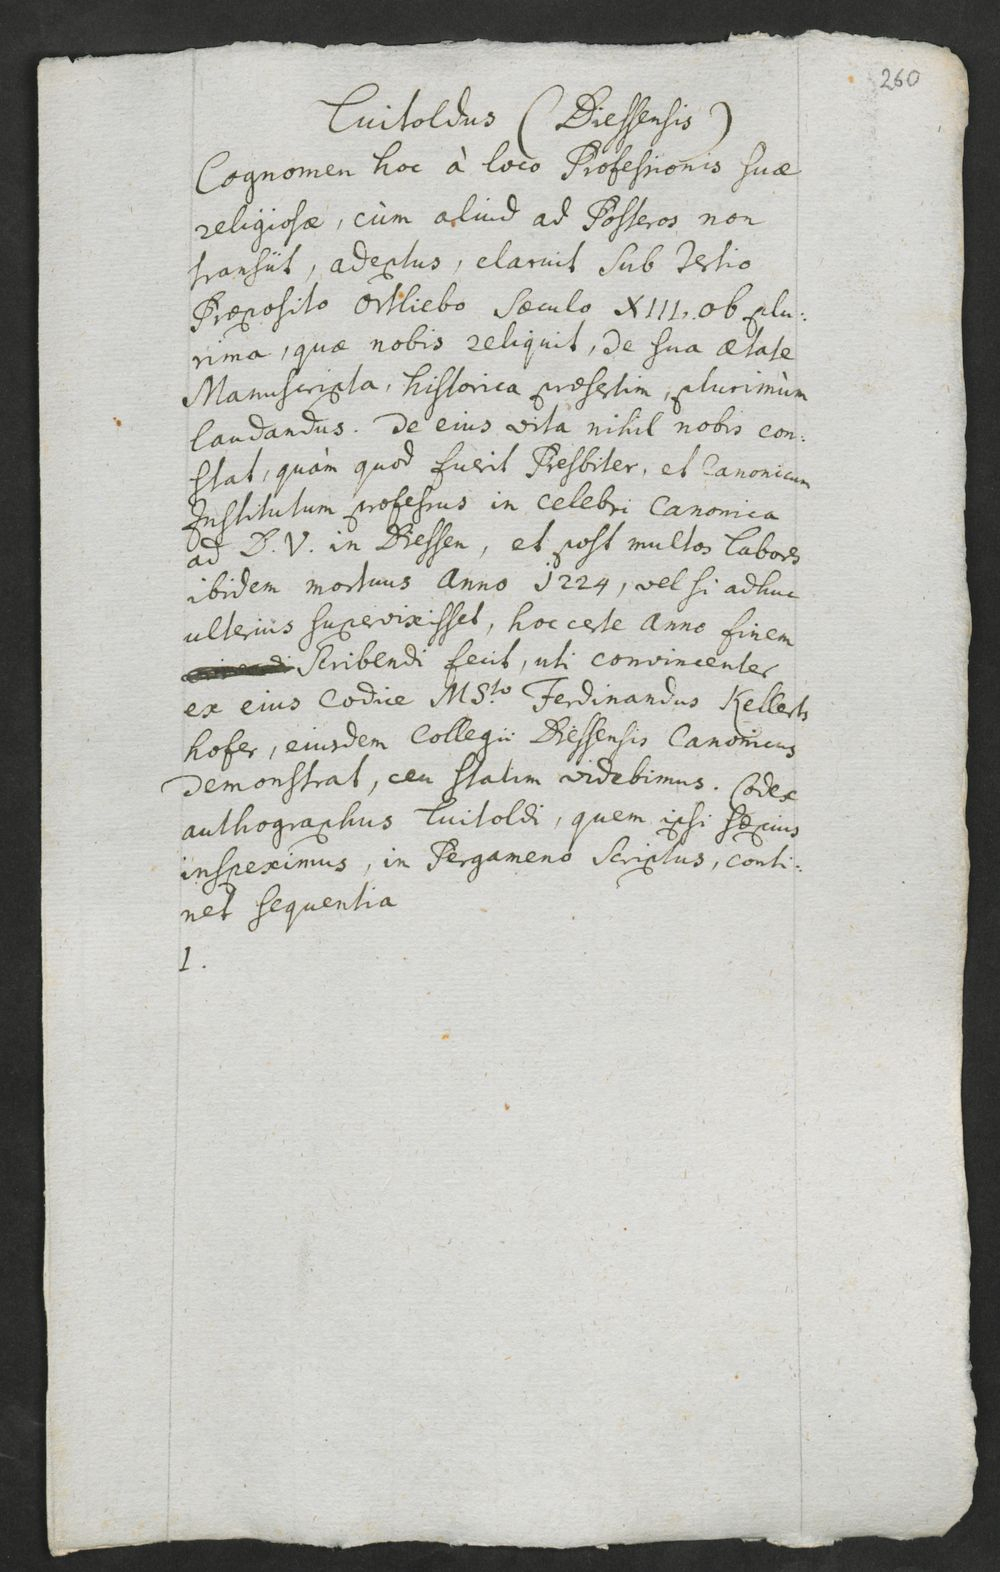 260
Luitoldus (Diessensis)
Cognomen hoc à loco Professionis suæ
religiosæ, cùm aliud ad Posteros non
transiit, adeptus, claruit sub Tertio
Præposito Ortliebo Sæculo XIII. ob plu:
rima, quæ nobis reliquit, de sua ætate
Manuscripta, historica præsertim, plurimùm
laudandus. De eius vita nihil nobis con:
stat, quàm quod fuerit Presbiter, et Canonicum
Institutum professus in celebri Canonica
ad B. V. in Diessen, et post multos labores
ibidem mortuus Anno 1224, vel si adhuc
ulterius supervixisset, hoc certe Anno finem
scribendi fecit, uti convincenter
ex eius Codice MS.to Ferdinandus Kellerts
hofer, eiusdem Collegii Diessensis Canonicus
demonstrat, ceu statim videbimus. Codex
authographus Luitoldi, quem ipsi sæpius
inspeximus, in Pergameno scriptus, conti:
net sequentia
1.